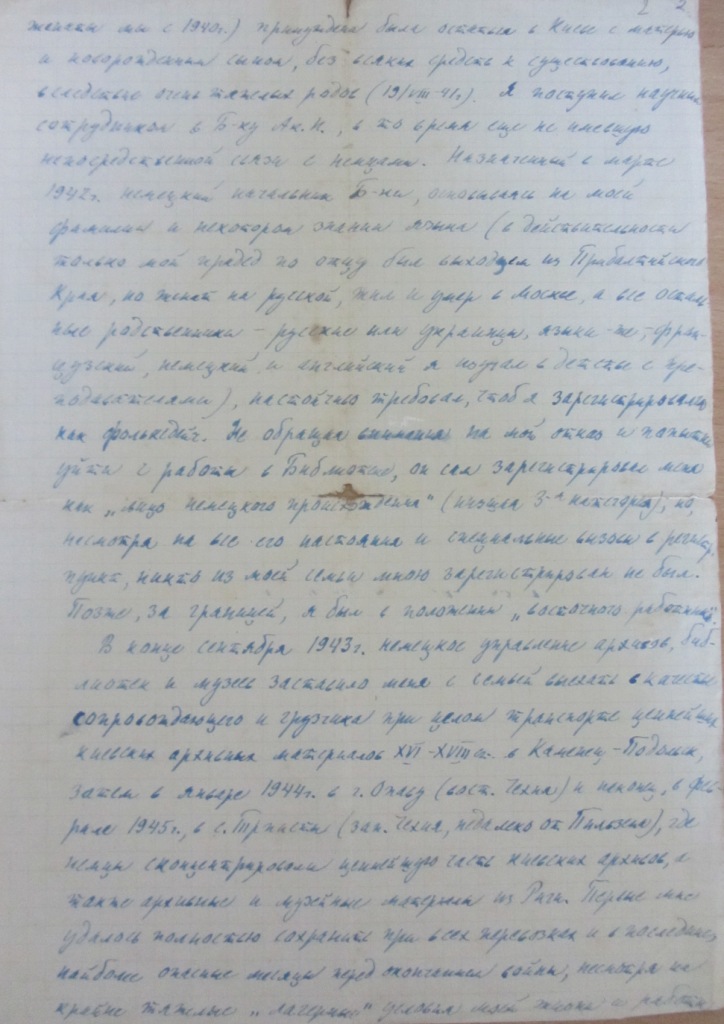 2
женаты мы с 1940г.) принуждена была остаться в Киеве с матерью
и новорожденным сыном, без всяких средств к существованию,
вследствие очень тяжелых родов (19/VIII-41г.). Я поступил научным
сотрудником в Б-ку Ак. Н., в то время еще не имевшую
непосредственной связи с немцами. Назначенный в марте
1942г. немецкий начальник Б-ки, основываясь на моей
фамилии и некотором знании языка (в действительности
только мой прадед по отцу был выходцем из Прибалтийского
Края, но женат на русской, жил и умер в Москве, а все осталь-
ные родственники – русские или украинцы, языки же, фран-
цузский, немецкий и английский я изучал в детстве с пре-
подавателями), настойчиво требовал, чтоб я зарегистрировался
как фольксдейч. Не обращая внимания на мой отказ и попытки
уйти с работы в Библиотеке, он сам зарегистрировал меня
как „лицо немецкого происхождения“ (низшая 3-я категория); но,
несмотря на все его настояния и специальные вызовы в регистр.
пункт, никто из моей семьи мною зарегистрирован не был.
Позже, за границей, я был в положении „восточного работника“.
В конце сентября 1943г. немецкое управление архивов, биб-
лиотек и музеев заставило меня с семьей выехать в качестве
сопровождающего и грузчика при целом транспорте ценнейших
киевских архивных материалов XVI-XVIII в. в Каменец-Подольск,
затем в январе 1944г. в г. Опаву (вост. Чехия) и наконец, в фев-
рале 1945г., в с. Тржисты (зап. Чехия, недалеко от Пильзена), где
немцы сконцентрировали ценнейшую часть киевских архивов, а
также архивные и музейные материалы из Риги. Первые мне
удалось полностью сохранить при всех перевозках и в последние,
наиболее опасные месяцы перед окончанием войны, несмотря на
крайне тяжелые „лагерные“ условия моей жизни и работы